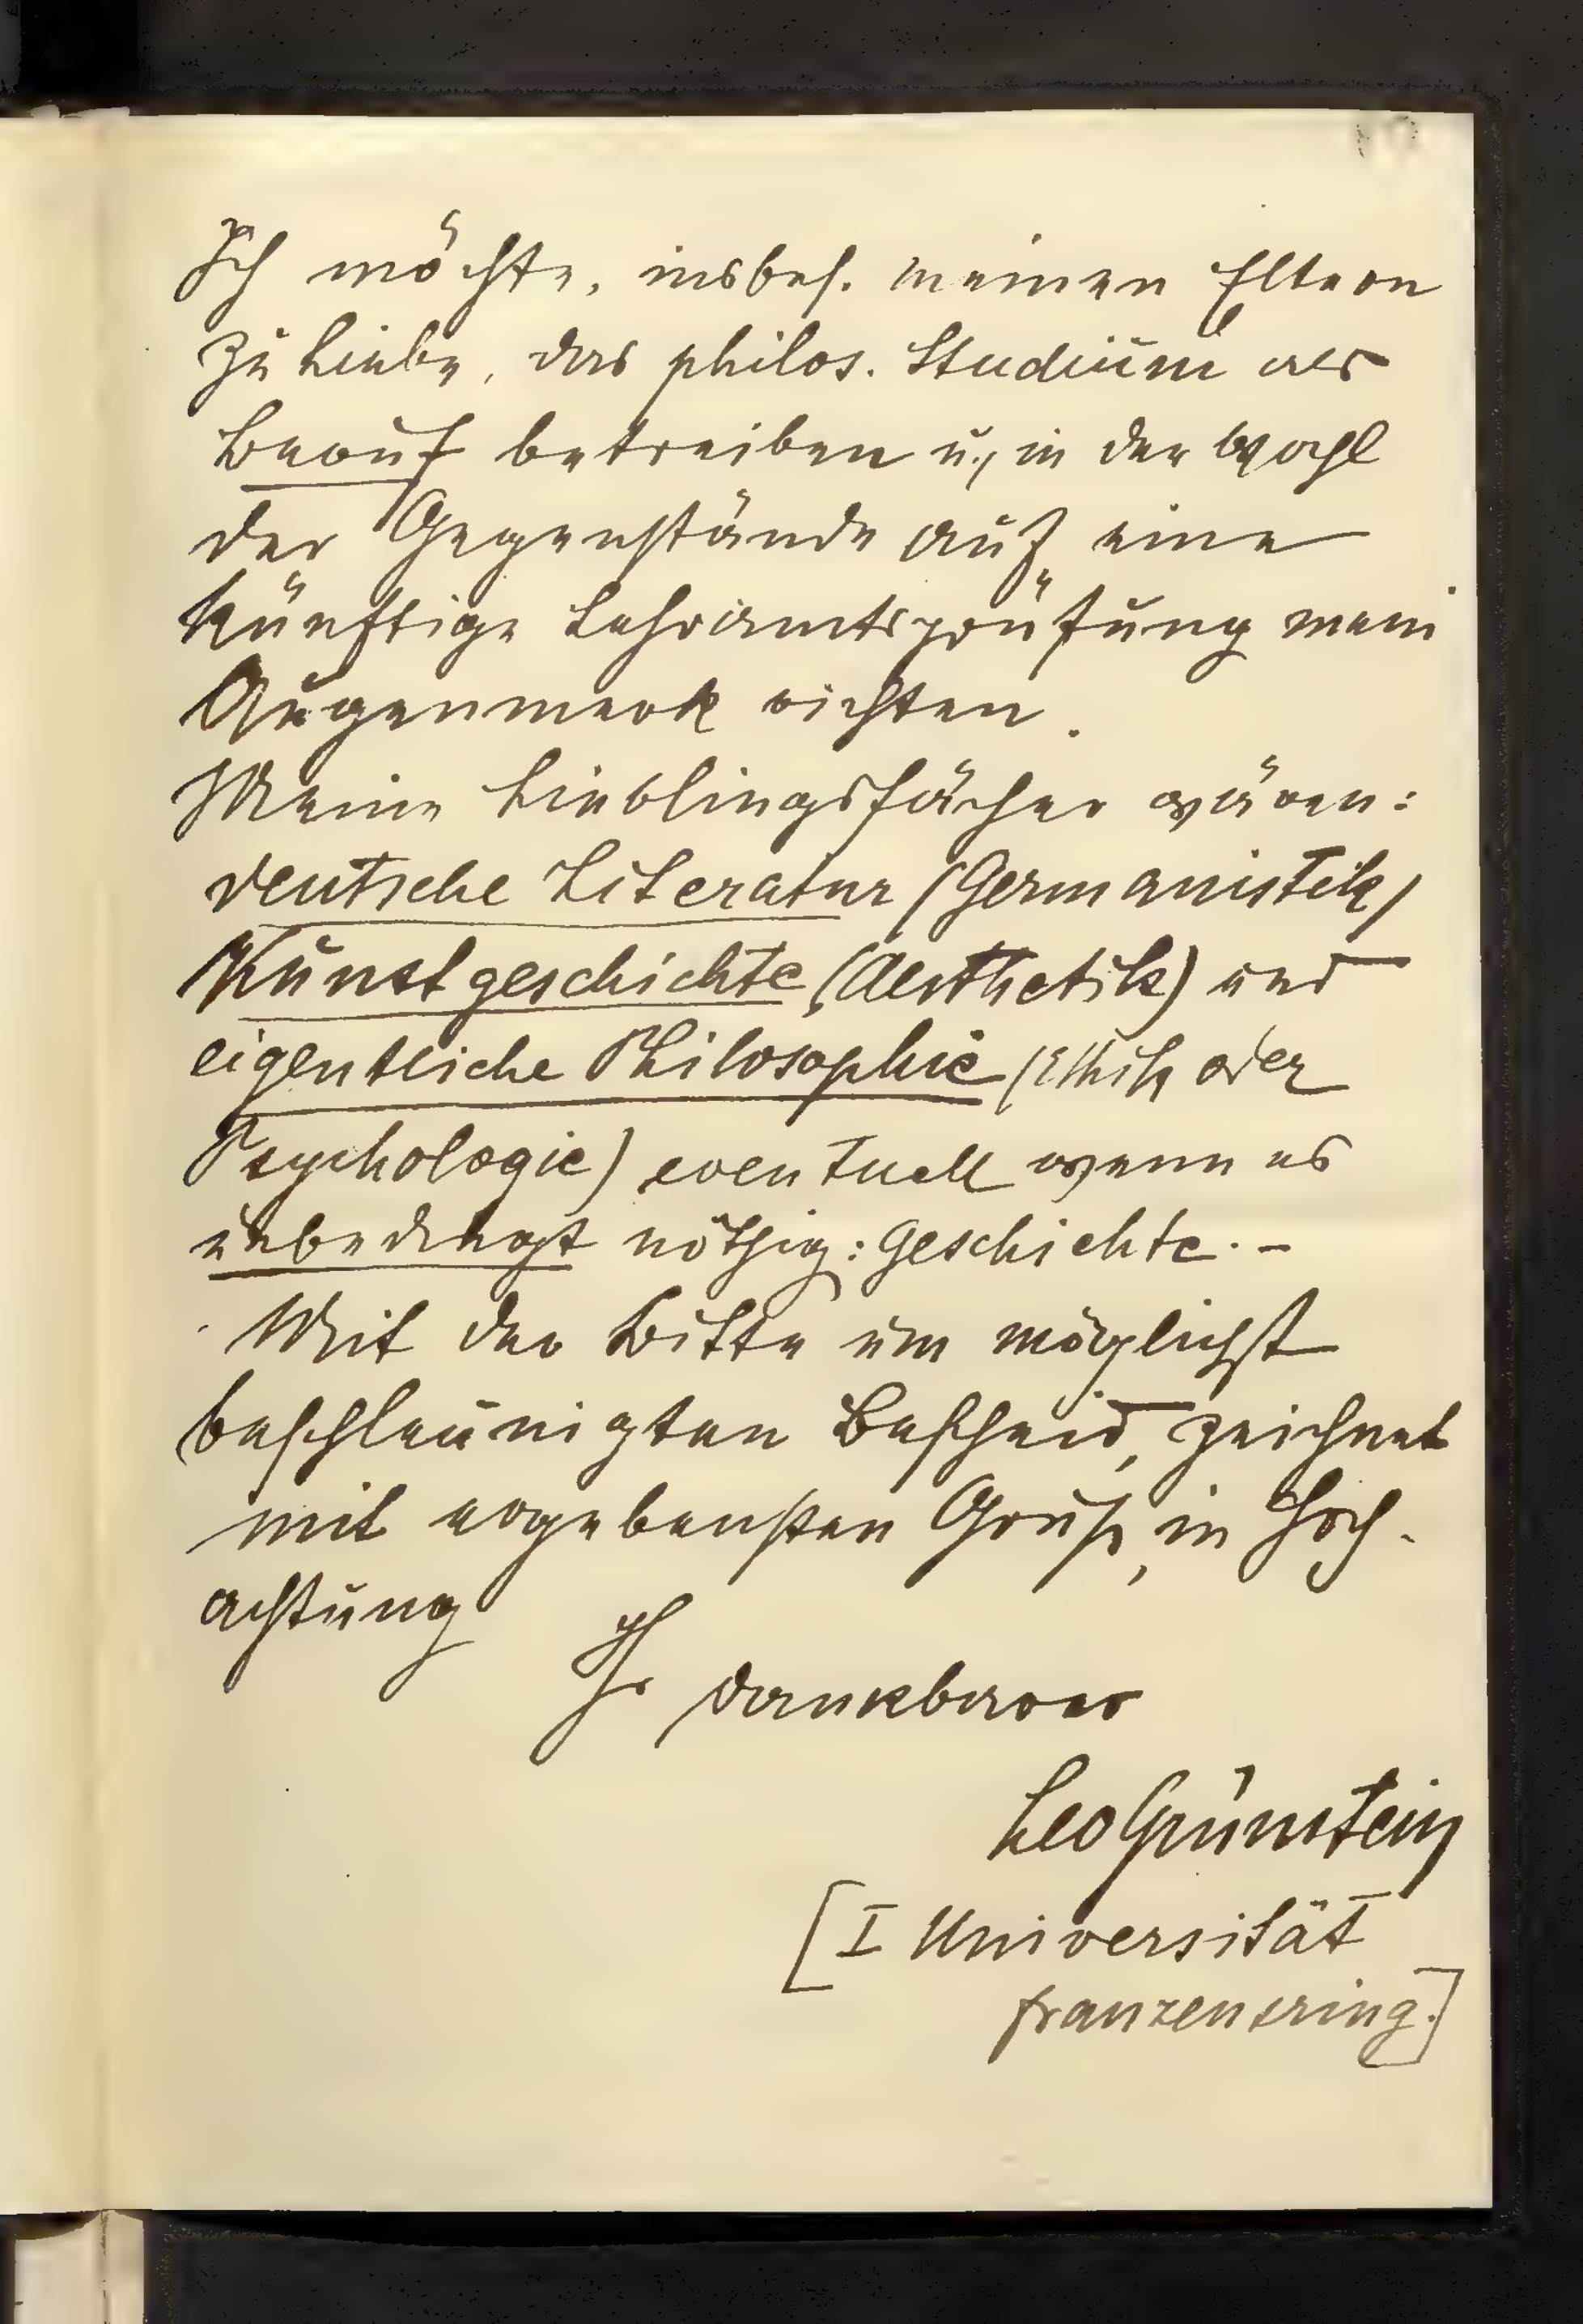 Ich möchte, insbes. meinen Eltern
zu Liebe, das philos. Studium als
Beruf betreiben u., in der Wahl
der Gegenstände auf eine
künftige Lehramtsprüfung mein
Augenmerk richten.
Meine Lieblingsfächer wären:
deutsche Literatur (Germanistik)
Kunstgeschichte (Aesthetik) und
eigentliche Philosophie (Ethik oder
Psychologie) eventuell wenn es
unbedingt nöthig: Geschichte. –
Mit der Bitte um möglichst
beschleunigten Bescheid, zeichnet
mit ergebensten Gruß, in Hoch-
achtung
Ihr dankbarer
Leo Grünstein
[I Universität
Franzensring.]